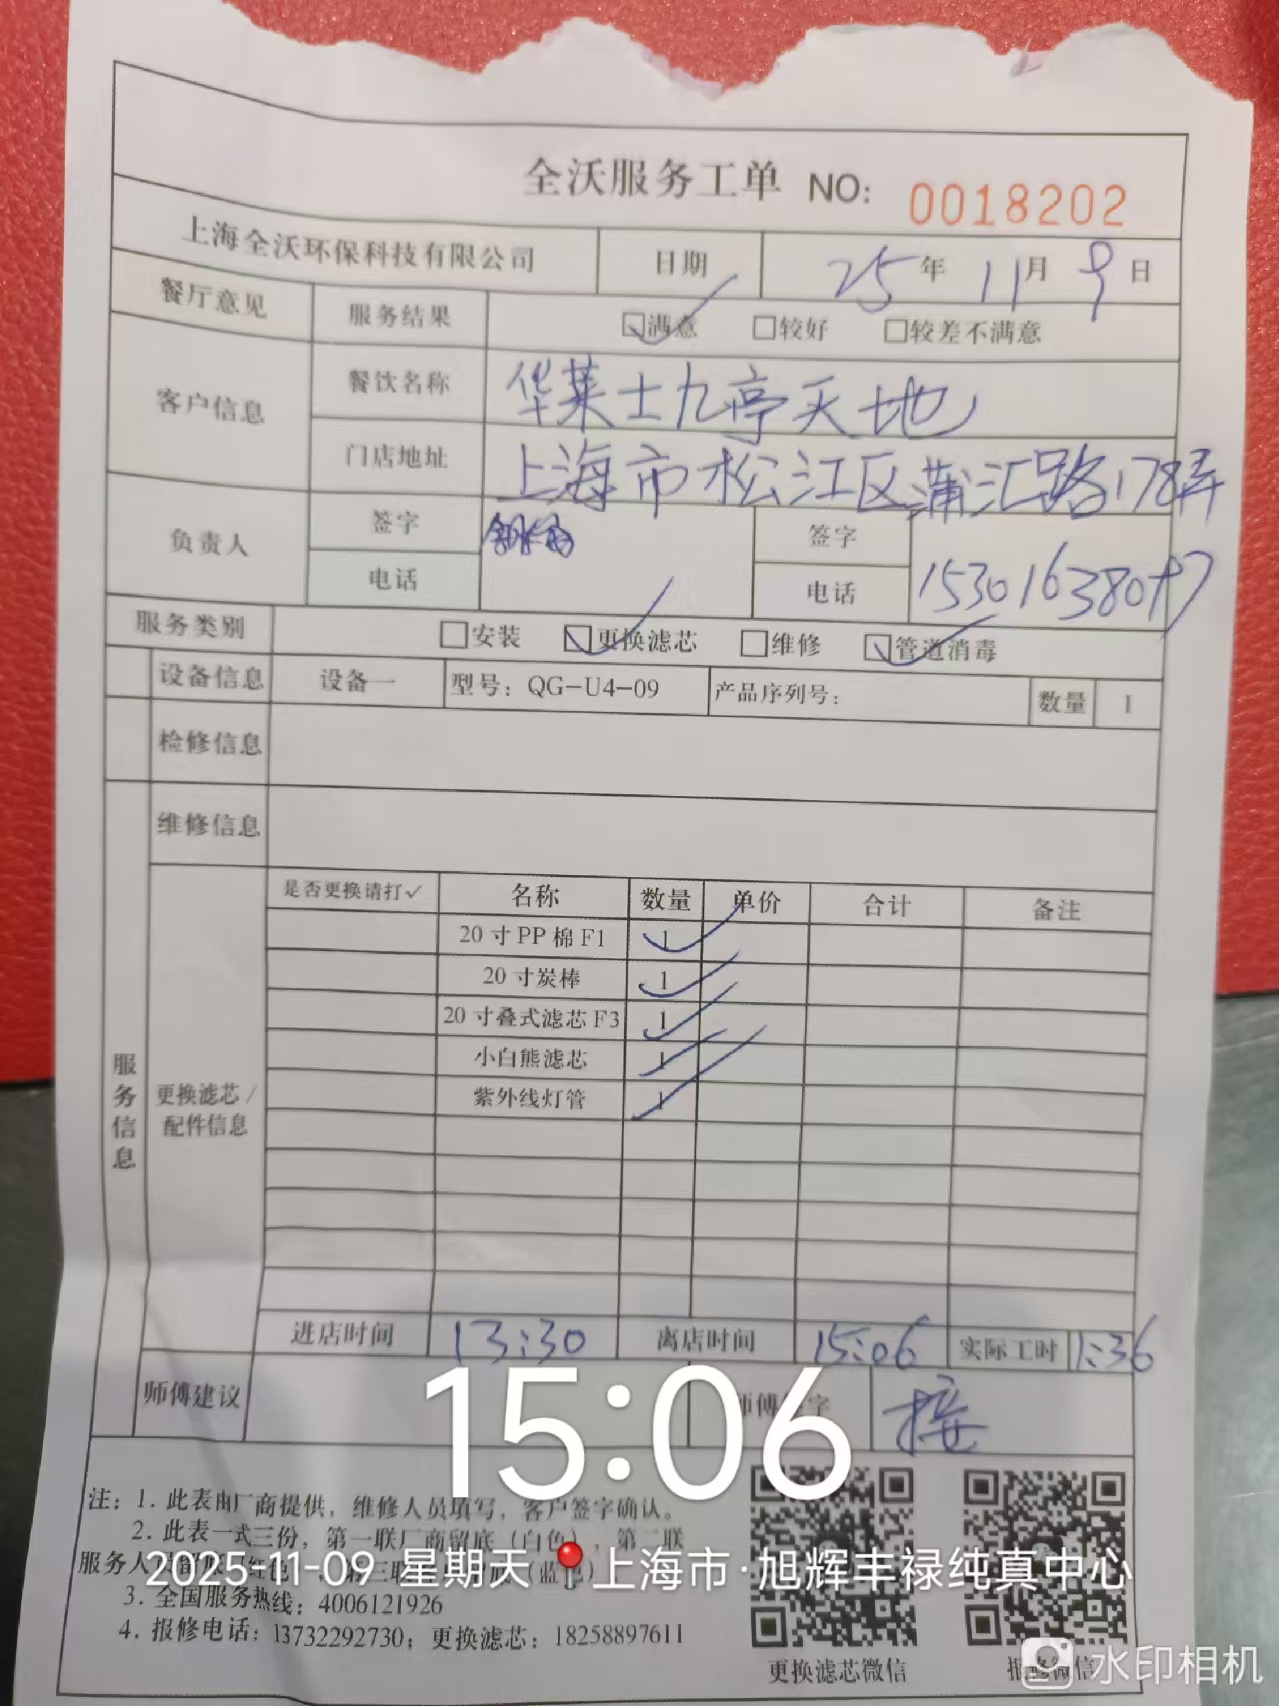 全沃服务工单 NO: 0018202
上海全沃环保科技有限公司 日期 25年 11月 9日
餐厅意见 服务结果 ☑满意 □较好 □较差不满意
客户信息 餐饮名称 华莱士九亭天地
门店地址 上海市松江区蒲汇路178弄
负责人 签字 签字
电话 电话 153016380
服务类别 □安装 ☑更换滤芯 □维修 ☑管道消毒
设备信息 设备一 型号: QG-U4-09 产品序列号: 数量 1
检修信息
维修信息
服务信息
更换滤芯/
配件信息
是否更换请打✓ 名称 数量 单价 合计 备注
20寸PP棉F1 1 ✓
20寸炭棒 1 ✓
20寸叠式滤芯F3 1 ✓
小白熊滤芯 1 ✓
紫外线灯管 1 ✓
进店时间 13:30 离店时间 15:06 实际工时 1:36
师傅建议 师傅签字
15:06
注: 1. 此表由厂商提供, 维修人员填写, 客户签字确认。
2. 此表一式三份, 第一联厂商留底 (白色), 第二联
服务人
2025-11-09 星期天 📍上海市·旭辉丰禄纯真中心
3. 全国服务热线: 4006121926
4. 报修电话: 13732292730; 更换滤芯: 18258897611
更换滤芯微信 报修微信
水印相机